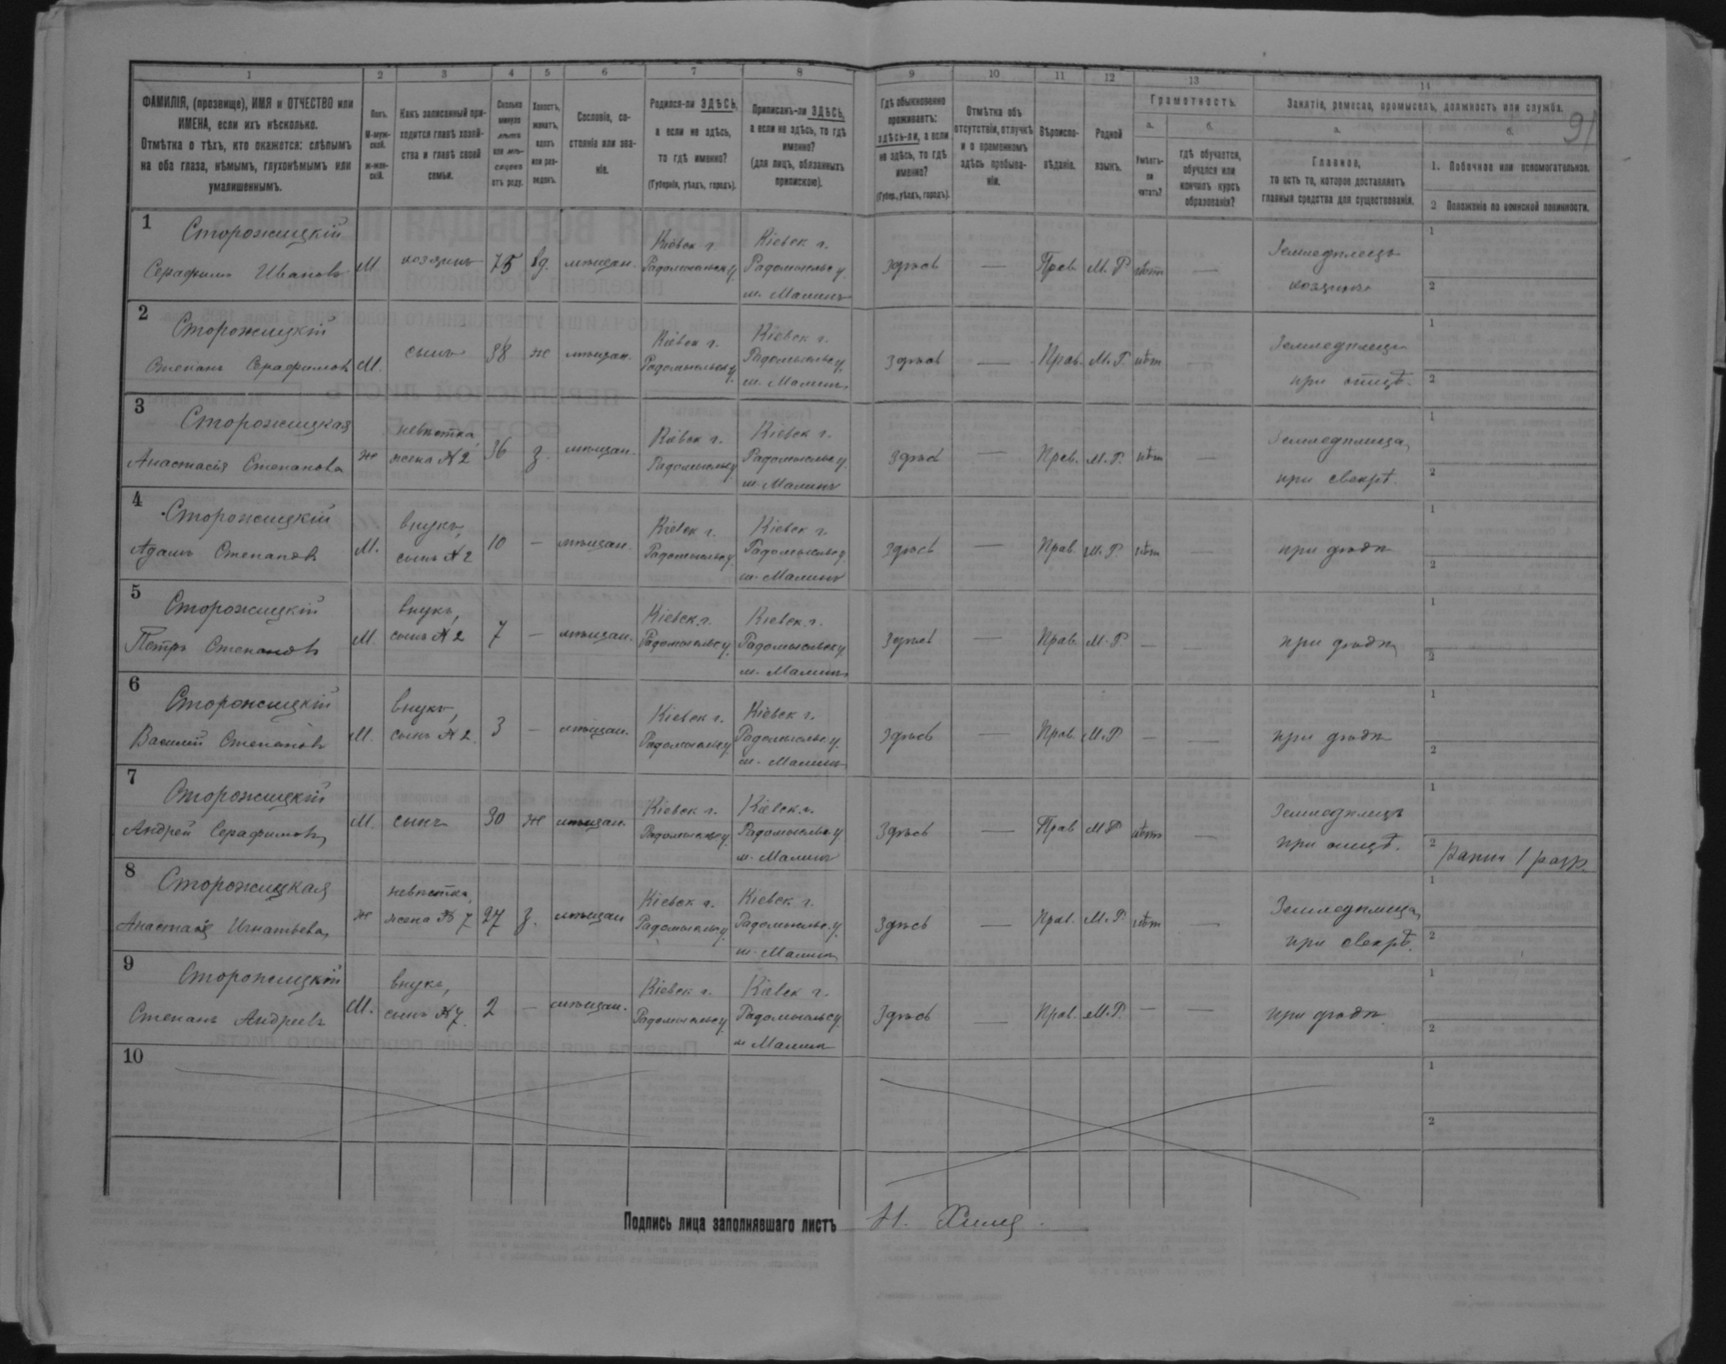 1 2 3 4 5 6 7 8 9 10 11 12 13 14
91
ФАМИЛІЯ, (прозвище), ИМЯ и ОТЧЕСТВО или ИМЕНА, если ихъ нѣсколько.
Отмѣтка о тѣхъ, кто окажется: слѣпымъ на оба глаза, нѣмымъ, глухонѣмымъ или умалишеннымъ.
Полъ. М-муж-ской. ж-жен-скій.
Какъ записанный при-ходится главѣ хозяй-ства и главѣ своей семьи.
Сколько минуло лѣтъ или мѣ-сяцевъ отъ роду.
Холостъ, женатъ, вдовъ или раз-веденъ.
Сословіе, со-стояніе или зва-ніе.
Родился-ли ЗДѢСЬ, а если не здѣсь, то гдѣ именно?
(Губернія, уѣздъ, городъ).
Приписанъ-ли ЗДѢСЬ, а если не здѣсь, то гдѣ именно?
(для лицъ, обязанныхъ припискою).
Гдѣ обыкновенно проживаетъ: здѣсь-ли, а если не здѣсь, то гдѣ именно?
(Губер., уѣздъ, городъ).
Отмѣтка объ отсутствіи, отлучкѣ и о временномъ здѣсь пребыва-ніи.
Вѣроиспо-вѣданіе.
Родной языкъ.
Грамотность.
а. Умѣетъ-ли читать?
б. гдѣ обучается, обучался или кончилъ курсъ образованія?
Занятіе, ремесло, промыселъ, должность или служба.
а. Главное,
то есть то, которое доставляетъ главныя средства для существованія.
б.
1. Побочное или вспомогательное.
2 Положеніе по воинской повинности.
1 Сторожицкій Серафимъ Ивановъ М. хозяинъ 75 вд. мѣщан. Кіевск г. Радомысльск у. Кіевск г. Радомысльск у. м. Малинъ здѣсь — Прав. М. Р. нѣт — Земледѣлецъ хозяинъ 1 2
2 Сторожицкій Степанъ Серафимовъ М. сынъ 38 ж мѣщан. Кіевск г. Радомысльск у. Кіевск г. Радомысльск у. м. Малинъ здѣсь — Прав. М. Р. нѣт — Земледѣлецъ при отцѣ. 1 2
3 Сторожицкая Анастасія Степанова ж невѣстка, жена №2 36 з. мѣщан. Кіевск г. Радомысльск у. Кіевск г. Радомысльск у. м. Малинъ здѣсь Прав. М. Р. нѣт — Земледѣлица при свекрѣ. 1 2
4 Сторожицкій Адамъ Степановъ М. внукъ, сынъ №2 10 — мѣщан. Кіевск г. Радомысльск у. Кіевск г. Радомысльск у. м. Малинъ здѣсь — Прав М. Р. нѣт — при дѣдѣ 1 2
5 Сторожицкій Петръ Степановъ М. внукъ, сынъ №2 7 — мѣщан. Кіевск г. Радомысльск у. Кіевск г. Радомысльск у. м. Малинъ здѣсь — Прав. М. Р. — — при дѣдѣ 1 2
6 Сторожицкій Василій Степановъ М. внукъ, сынъ №2. 3 — мѣщан. Кіевск г. Радомысльск у. Кіевск г. Радомысльск у. м. Малинъ здѣсь — Прав. М. Р — — при дѣдѣ 1 2
7 Сторожицкій Андрей Серафимовъ М. сынъ 30 ж мѣщан. Кіевск г. Радомысльск у. Кіевск г. Радомысльск у. м. Малинъ здѣсь — Прав М Р нѣт — Земледѣлецъ при отцѣ. 1 2 1 разр.
8 Сторожицкая Анастасія Игнатьева ж невѣстка, жена №7 27 з. мѣщан Кіевск г. Радомысльск у. Кіевск г. Радомысльск у. м. Малинъ здѣсь — Прав. М. Р. нѣт — Земледѣлица при свекрѣ. 1 2
9 Сторожицкій Степанъ Андреевъ М. внукъ, сынъ №7. 2 — мѣщан. Кіевск г. Радомысльск у. Кіевск г. Радомысльск у. м Малинъ здѣсь — Прав. М. Р. — — при дѣдѣ 1 2
10 1 2
Подпись лица заполнявшаго листъ Н.